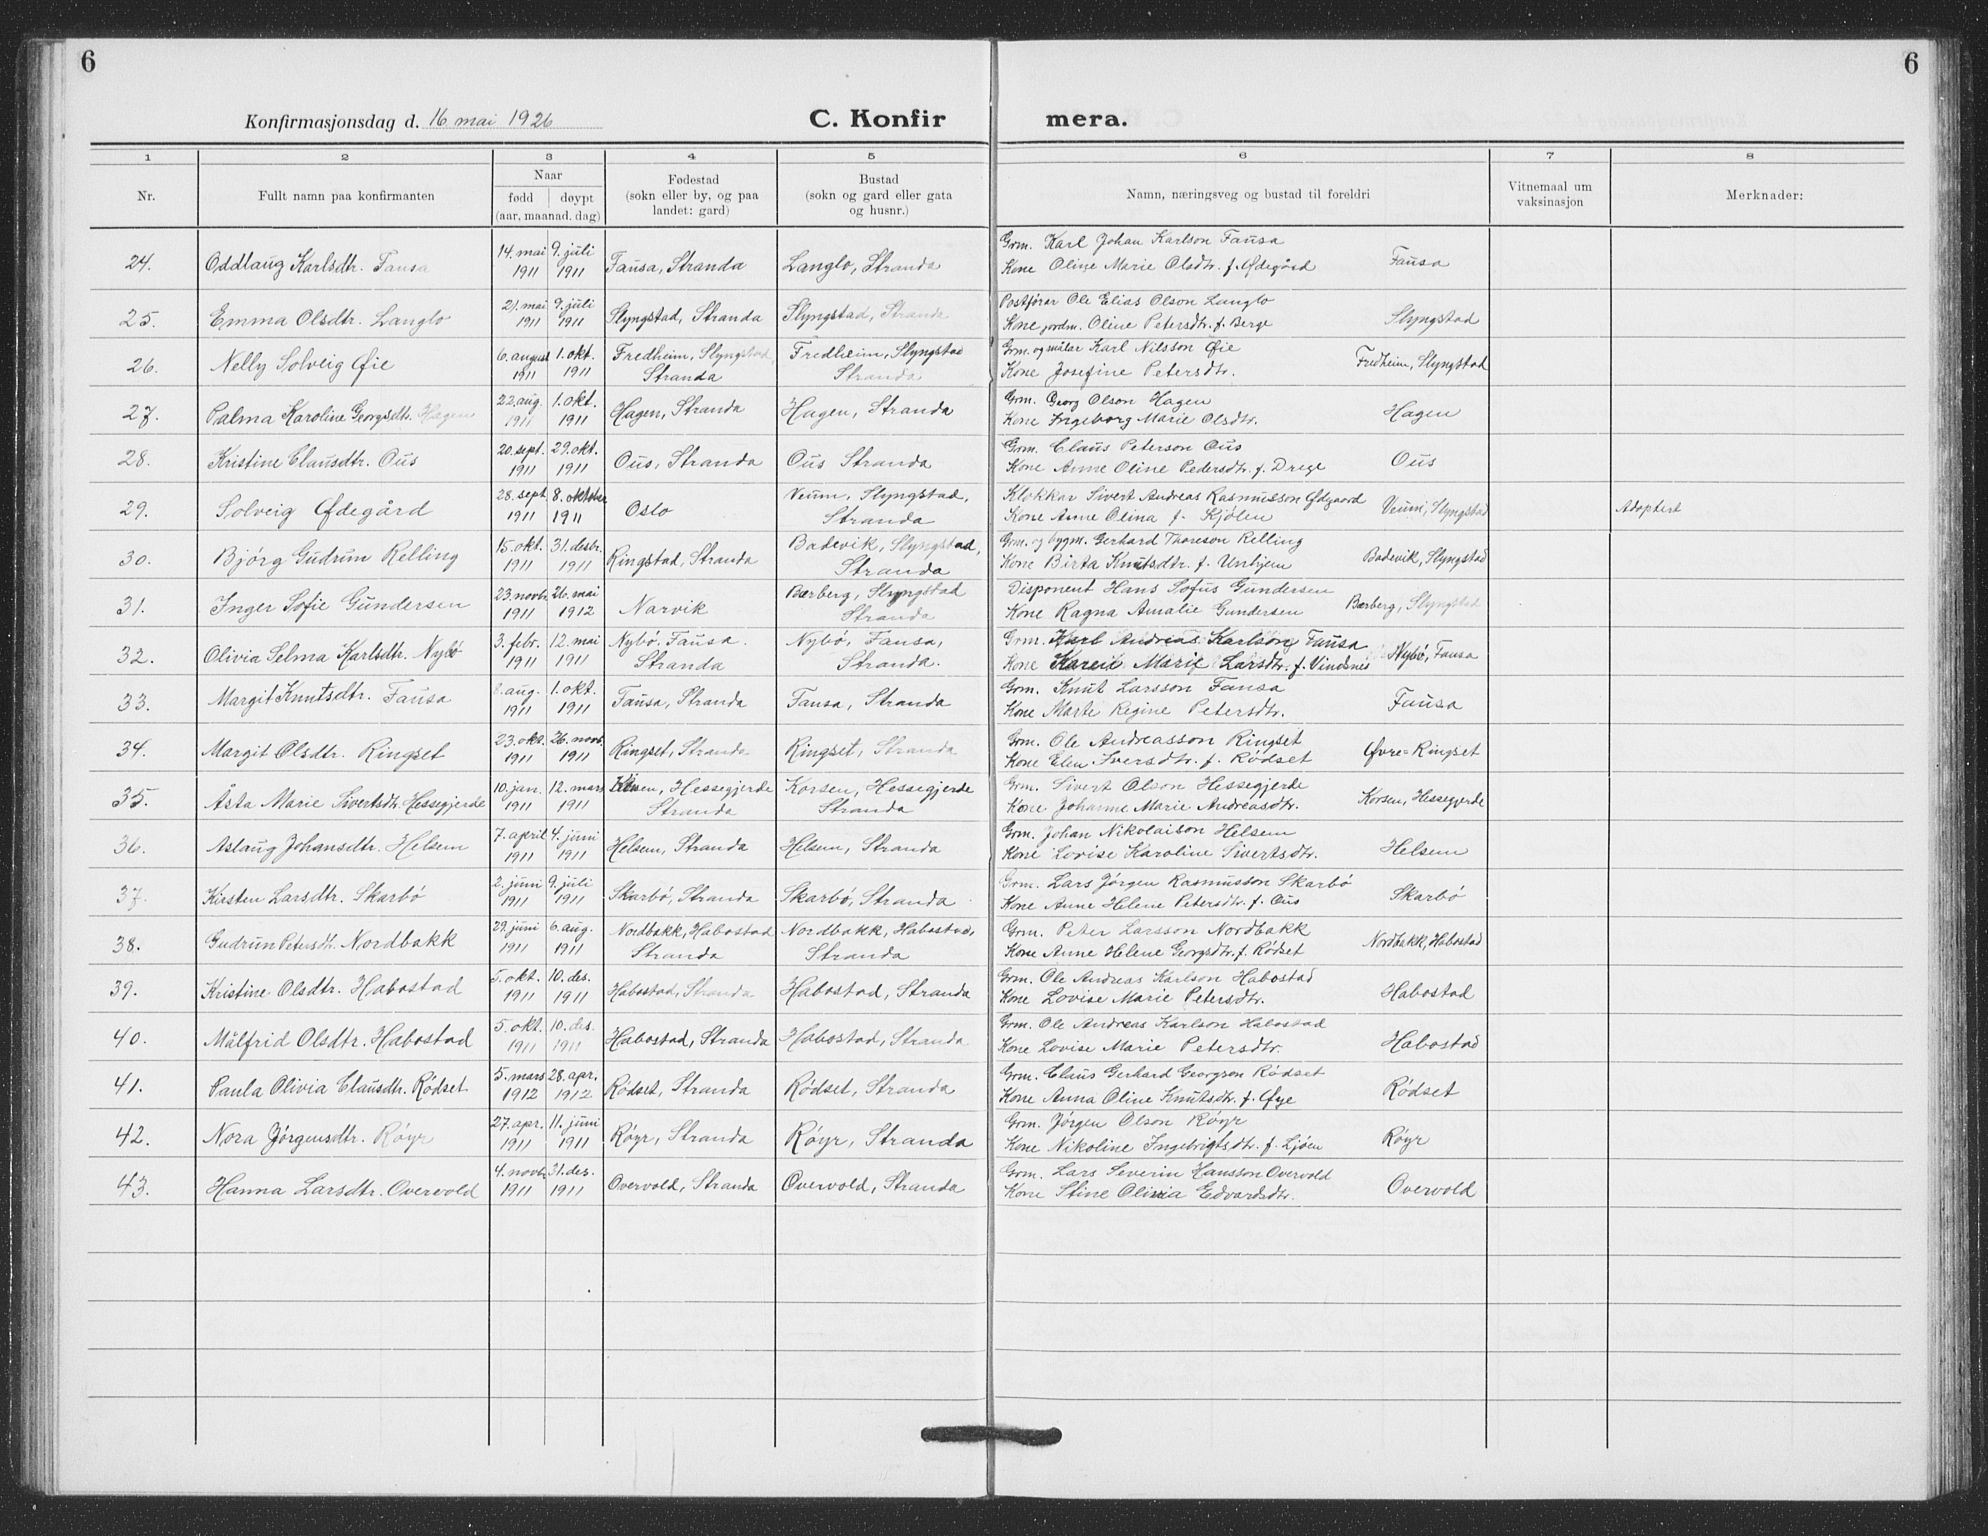 6
6
Konfirmasjonsdag d. 16 mai 1926
C. Konfir mera.
1 2 3 4 5 6 7 8
Nr. Fullt namn paa konfirmanten Naar født døypt (aar, maanad. dag) Fødestad (sokn eller by, og paa landet: gard) Bustad (sokn og gard eller gata og husnr.) Namn, næringsveg og bustad til foreldri Vitnemaal um vaksinasjon Merknader:
24. Oddlaug Karlsdtr. Fausa 14. mai 1911 9. juli 1911 Fausa, Stranda Langlo, Stranda Grm. Karl Johan Karlson Fausa
Kone Oline Marie Olsdtr. f. Ødegård Fausa
25. Emma Olsdtr. Langlo 21. mai 1911 9. juli 1911 Slyngstad, Stranda Slyngstad, Stranda Postførar Ole Elias Olson Langlo
Kone jordm. Oline Petersdtr. f. Berge Slyngstad
26. Nelly Solveig Øie 6. august 1911 1. okt. 1911 Fredheim, Slyngstad, Stranda Fredheim, Slyngstad Stranda Grm. og målar Karl Nilsson Øie
Kone Josefine Petersdtr. Fredheim, Slyngstad
27. Palma Karoline Georgsdtr. Hagen 22. aug. 1911 1. okt. 1911 Hagen, Stranda Hagen, Stranda Grm. Georg Olson Hagen
Kone Ingeborg Marie Olsdtr. Hagen
28. Kristine Clausdtr. Ous 20. sept. 1911 29. okt. 1911 Ous, Stranda Ous Stranda Grm. Claus Peterson Ous
Kone Anne Oline Pedersdtr. f. Drege Ous
29. Solveig Ødegård 28. sept. 1911 8. oktober 1911 Oslo Veum, Slyngstad, Stranda Klokkar Sivert Andreas Rasmusson Ødgaard
Kone Anne Olina f. Kjølen Veum, Slyngstad Adoptert
30. Bjørg Gudrun Relling 15. okt. 1911 31. desbr. 1911 Ringstad, Stranda Badevik, Slyngstad, Stranda Grm. og bygm. Gerhard Thoreson Relling
Kone Birta Knutsdtr. f. Unhjem Badevik, Slyngstad
31. Inger Sofie Gundersen 23. novbr. 1911 26. mai 1912 Narvik Bærberg, Slyngstad Stranda Disponent Hans Sofus Gundersen
Kone Ragna Amalie Gundersen Bærberg, Slyngstad
32. Olivia Selma Karlsdtr. Nybø 3. febr. 1911 12. mai 1911 Nybø, Fausa. Stranda Nybø, Fausa, Stranda. Grm. Karl Andreas Karlson Fausa
Kone Karen Marie Larsdtr. f. Vindsnes Nybø, Fausa
33. Margit Knutsdtr. Fausa 8. aug. 1911 1. okt. 1911 Fausa, Stranda Fausa, Stranda Grm. Knut Larsson Fausa
Kone Marte Regine Petersdtr. Fausa
34. Margit Olsdtr. Ringset 23. okt. 1911 26. novb. 1911 Ringset, Stranda Ringset, Stranda Grm. Ole Andreasson Ringset
Kone Elen Iversdtr. f. Rødset Øvre=Ringset
35. Åsta Marie Sivertsdtr. Hessegjerde 10. jan. 1911 12. mars 1911 Hessegjerde Stranda Korsen, Hessegjerde Stranda Grm. Sivert Olson Hessegjerde
Kone Johanne Marie Andreasdtr. Korsen, Hessegjerde
36. Aslaug Johansdtr. Helsem 7. april 1911 4. juni 1911 Helsem, Stranda Helsem, Stranda Grm. Johan Nikolaison Helsem
Kone Lovise Karoline Sivertsdtr. Helsem
37. Kirsten Larsdtr. Skarbø 2. juni 1911 9. juli 1911 Skarbø, Stranda Skarbø, Stranda Grm. Lars Jørgen Rasmusson Skarbø
Kone Anne Helene Petersdtr. f. Ous Skarbø
38. Gudrun Petersdtr. Nordbakk 29. juni 1911 6. aug. 1911 Nordbakk, Habostad Stranda Nordbakk, Habostad, Stranda Grm. Peter Larsson Nordbakk
Kone Anne Helene Georgsdtr. f. Rødset Nordbakk, Habostad
39. Kristine Olsdtr. Habostad 5. okt. 1911 10. des. 1911 Habostad, Stranda Habostad, Stranda Grm. Ole Andreas Karlson Habostad
Kone Lovise Marie Petersdtr. Habostad
40. Målfrid Olsdtr. Habostad 5. okt. 1911 10. des. 1911 Habostad, Stranda Habostad, Stranda Grm. Ole Andreas Karlson Habostad
Kone Lovise Marie Petersdtr. Habostad
41. Paula Olivia Clausdtr. Rødset 5. mars 1912 28. apr. 1912 Rødset, Stranda Rødset, Stranda Grm. Claus Gerhard Georgson Rødset
Kone Anna Oline Knutsdtr. f. Øye Rødset
42. Nora Jørgensdtr. Røyr 27. apr. 1911 11. juni 1911 Røyr, Stranda Røyr, Stranda Grm. Jørgen Olson Røyr
Kone Nikoline Ingebrigtsdtr. f. Ljøen Røyr
43. Hanna Larsdtr. Overvold 4. novb. 1911 31. des. 1911 Overvold, Stranda Overvold, Stranda Grm. Lars Severin Hansson Overvold
Kone Stine Olivia Edvardsdtr. Overvold